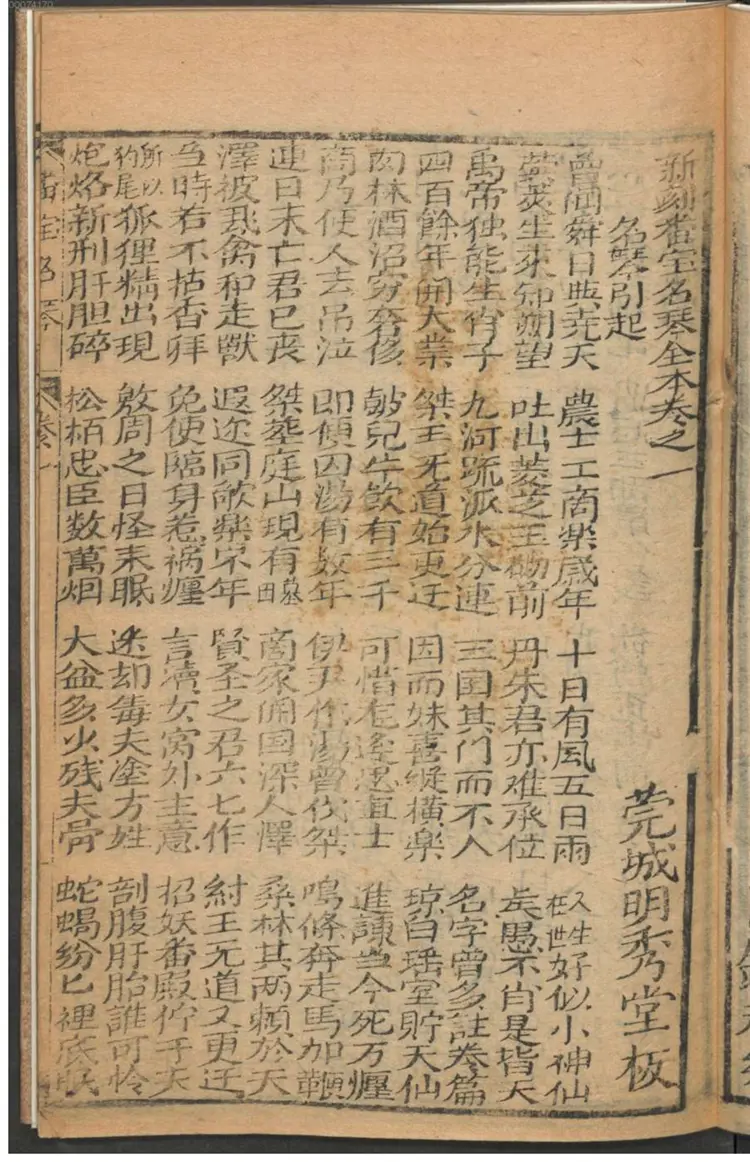 00074170
新刻番宝名琴全本卷之一
名琴引起 莞城明秀堂板
曾聞舜日典尭天 農士工商樂歲年 十日有風五日雨 人生在世好似小神仙
蓂荚生來知朔望 吐出菱芝玉砌前 丹朱君亦难承位 矣愚不肖是皆天
禹帝独能生肖子 九河疏派水分連 三囯其门而不入 名字曾多註卷篇
四百餘年開大業 桀王无道始更迁 因而妹喜縱橫樂 琼白瑶堂貯天仙
肉林酒沼穷奢侈 皷兒牛飲有三千 可惜龙逄忠直士 進諫當今死万
商乃使人去吊泣 即便囚湯有数年 伊尹佐湯曾伐桀 鳴條奔走馬加鞭
日末亡君已丧 桀塟庭山現有墓田 商家佣国深人懌 桑林其两頼於天
澤被飛禽和走獸 遐迩同歌樂年 賢圣之君六七作 紂王无道又更迁
当時若不拈香拜 免使臨身惹禍纏 言凟女窩外主意 招妖番殿佇于天
所以豹尾狐狸精出現 敗周之日怪未眠 迷却毒夫塗方姓 剖腹肝胎誰可怜
炮烙新刑肝胆碎 松栢忠臣数萬烟 大盆多火残夫骨 蛇蝎纷匕裡底眠
番宝名琴 卷一